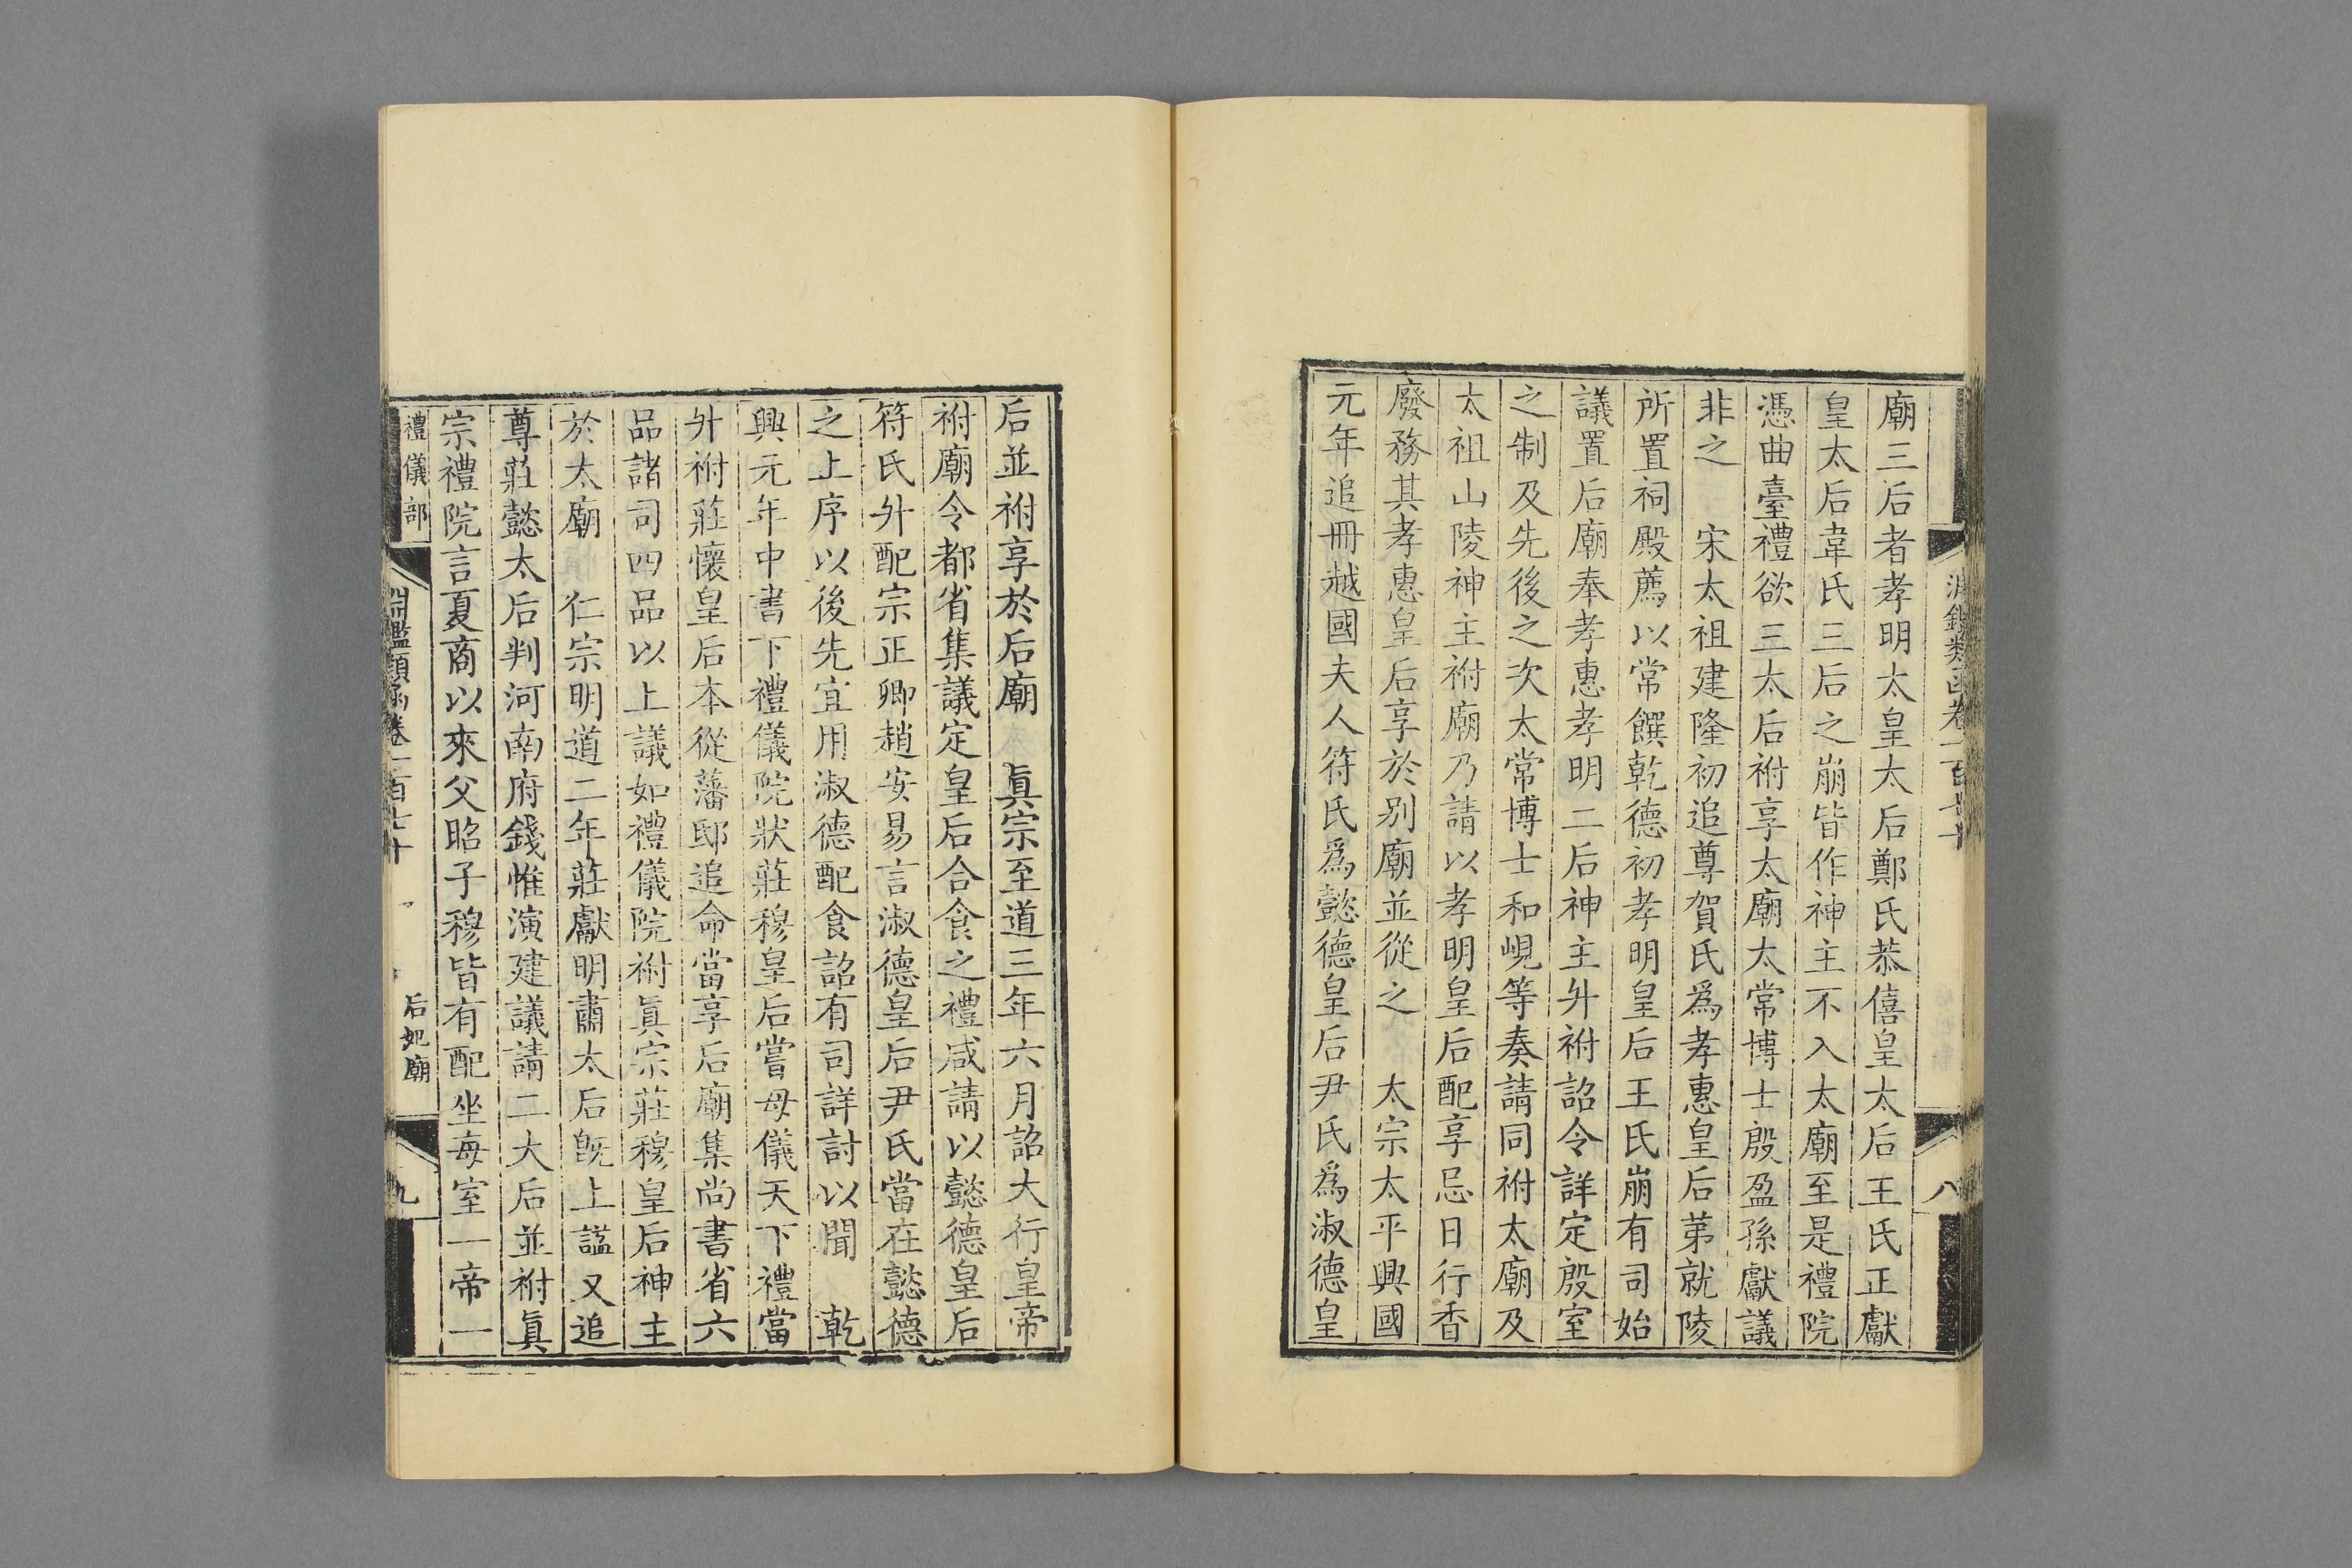 廟三后者孝明太皇太后鄭氏恭僖皇太后王氏正獻
皇太后韋氏三后之崩皆作神主不入太廟至是禮院
憑曲臺禮欲三太后祔享太廟太常博士殷盈孫獻議
非之　宋太祖建隆初追尊賀氏為孝惠皇后苐就陵
所置祠殿薦以常饌乾德初孝明皇后王氏崩有司始
議置后廟奉孝惠孝明二后神主升祔詔令詳定殷室
之制及先後之次太常博士和峴等奏請同祔太廟及
太祖山陵神主祔廟乃請以孝明皇后配享忌日行香
廢務其孝惠皇后享於别廟並從之　太宗太平興國
元年追冊越國夫人符氏為懿德皇后尹氏為淑德皇
后並祔享於后廟　眞宗至道三年六月詔大行皇帝
祔廟令都省集議定皇后合食之禮咸請以懿德皇后
符氏升配宗正卿趙安易言淑德皇后尹氏當在懿德
之上序以後先宜用淑德配食詔有司詳討以聞　乾
興元年中書下禮儀院狀莊穆皇后嘗母儀天下禮當
升祔莊懷皇后本從藩邸追命當享后廟集尚書省六
品諸司四品以上議如禮儀院祔眞宗莊穆皇后神主
於太廟　仁宗明道二年莊獻明肅太后旣上諡又追
尊莊懿太后判河南府錢惟演建議請二大后並祔眞
宗禮院言夏商以來父昭子穆皆有配坐每室一帝一
禮儀部
淵鑑類函卷一百七十
后妃廟
九